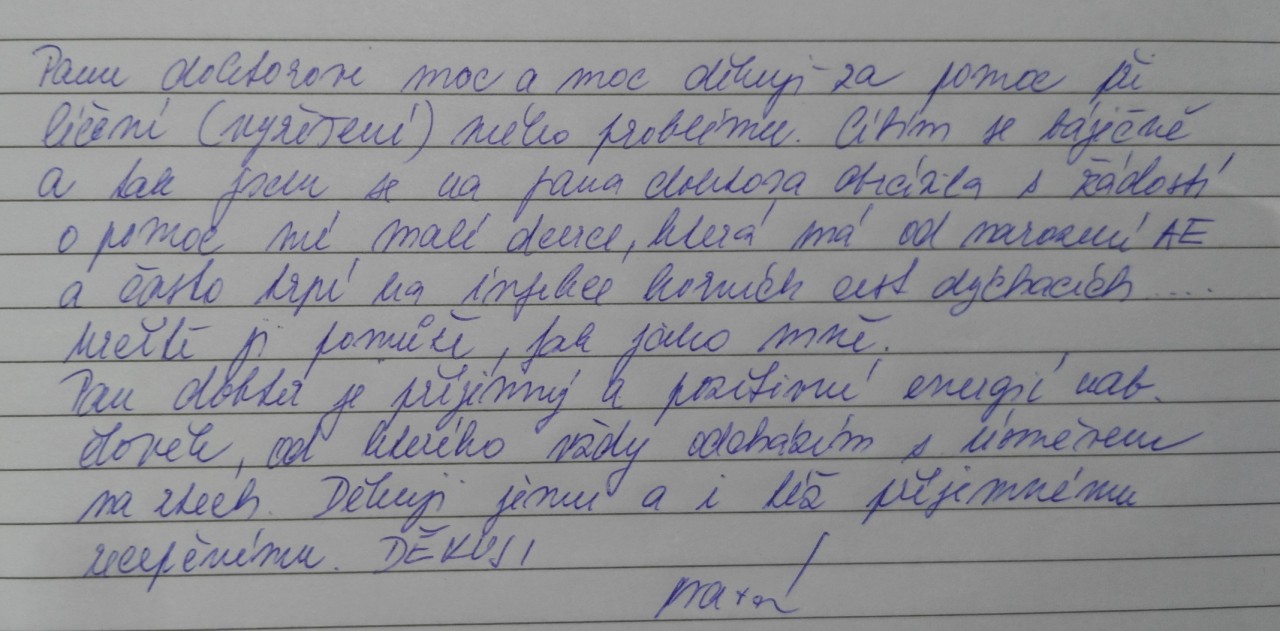 Panu doktorovi moc a moc děkuji za pomoc při
léčení (vyřešení) mého problému. Cítím se báječně
a tak jsem se na pana doktora obrátila s žádostí
o pomoc mé malé dcerce, která má od narození AE
a často trpí na infekce horních cest dýchacích ....
Určitě jí pomůže, jak jako mně.
Pan doktor je příjemný a pozitivní energií nab.
člověk, od kterého vždy odcházím s úsměvem
na rtech. Děkuji jemu a i též příjemnému
recepčnímu. DĚKUJI